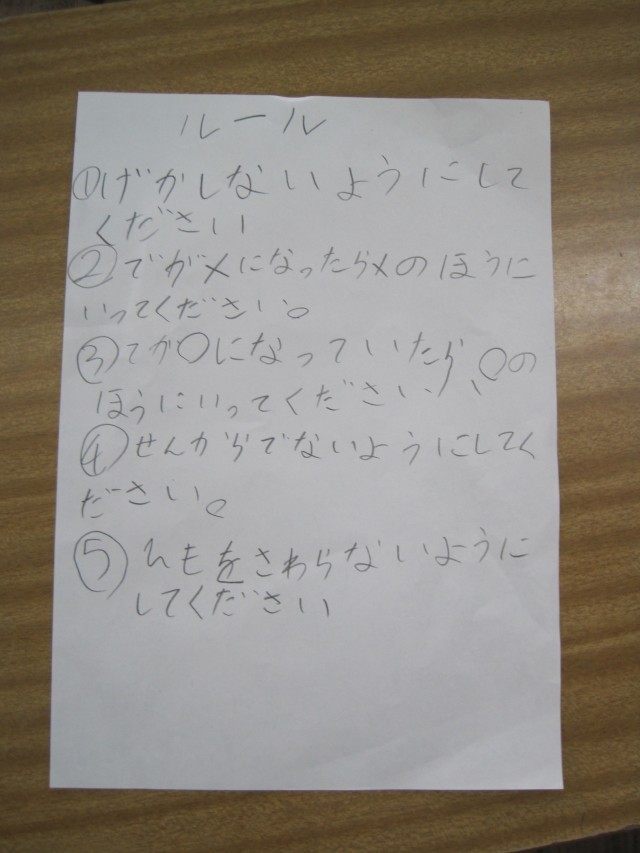 ルール
①げがしないようにして
ください
②でが×になったら×のほうに
いってください。
③てが○になっていたら、○の
ほうにいってください、
④せんからでないようにしてく
ださい。
⑤ひもをさわらないように
してください